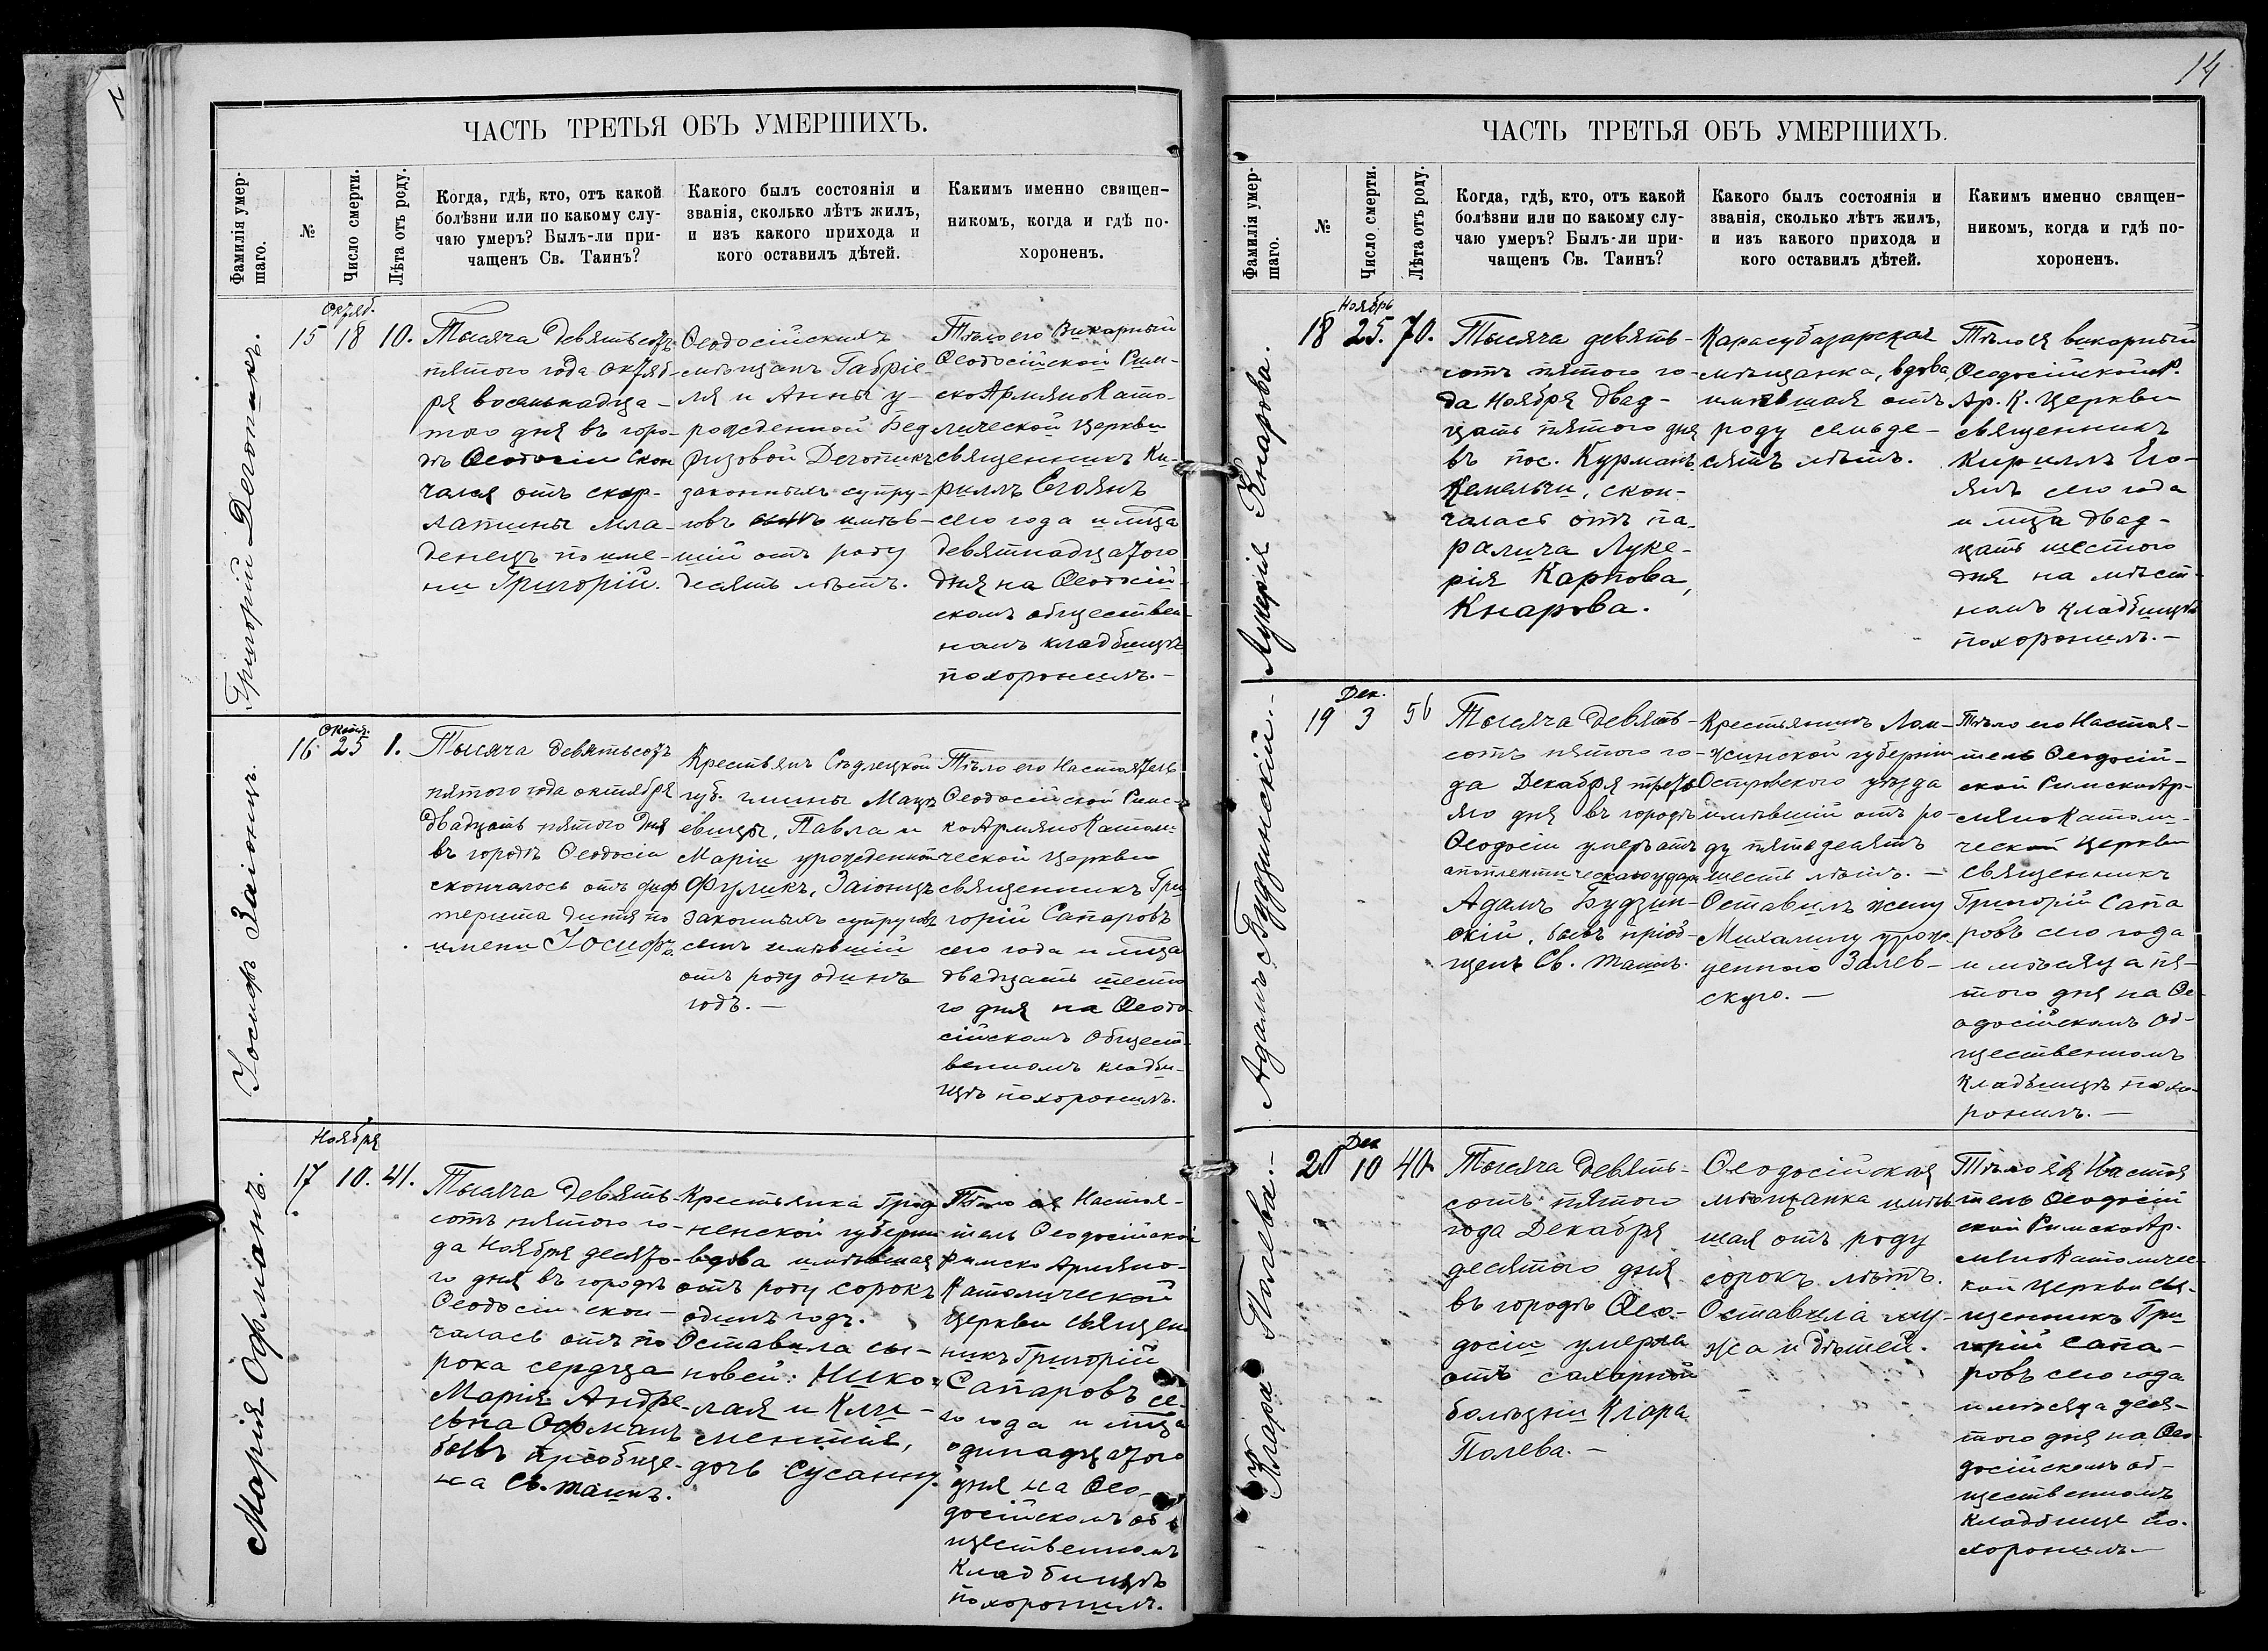 14
ЧАСТЬ ТРЕТЬЯ ОБЪ УМЕРШИХЪ.
Фамилія умер-
шаго.
№
Число смерти.
Лѣта отъ роду.
Когда, гдѣ, кто, отъ какой
болѣзни или по какому слу-
чаю умеръ? Былъ-ли при-
чащенъ Св. Таинъ?
Какого былъ состоянія и
званія, сколько лѣтъ жилъ,
и изъ какого прихода и
кого оставилъ дѣтей.
Какимъ именно священ-
никомъ, когда и гдѣ по-
хороненъ.
Григорій Дегопикъ.
Октяб.
15 18 10.
Тысяча девятьсотъ
пятого года октяб-
ря восемнадца-
того дня въ горо-
дѣ Ѳеодосіи скон
чался отъ скар-
латины мла-
денецъ по име-
ни Григорій.
Ѳеодосійскихъ
мѣщанъ Габріе-
ля и Анны у-
рожденной Бед
ризовой Дегопикъ
законныхъ супру-
говъ имѣв-
шій отъ роду
десять лѣтъ.
Тѣло его Викарный
Ѳеодосійской Рим-
скоАрмяноКато-
лической церкви
священникъ Ки-
риллъ Егоянъ
сего года и мца
девятнадцатого
дня на Ѳеодосій-
скомъ обществен-
номъ кладбищѣ
похоронилъ.-
Іосифъ Заіонцъ.
Октяб.
16 25 1.
Тысяча девятьсотъ
пятого года октября
двадцать пятого дня
въ городѣ Ѳеодосіи
скончалось отъ диф
терита дитя по
имени Іосифъ.
Крестьянъ Сѣдлецкой
губ. гмины Мацѣ
евицы, Павла и
Маріи урожденной
Фулякъ, Заіонцъ
законныхъ супруговъ
сынъ имѣвшій
отъ роду одинъ
годъ.-
Тѣло его Настоятель
Ѳеодосійской Римс-
коАрмяноКатоли-
ческой церкви
священникъ Гри
горій Сапаровъ
сего года и мца
двадцать шесто
го дня на Ѳеодо-
сійскомъ Общест-
венномъ кладби-
щѣ похоронилъ.
Марія Офманъ.
Ноября
17 10. 41.
Тысяча девять-
сотъ пятого го-
да Ноября десято-
го дня въ городѣ
Ѳеодосіи скон-
чалась отъ по
рока сердца
Марія Андре-
евна Офманъ
бывъ пріобще-
на Св. таинъ.
Крестьянка Грод
ненской губерніи
вдова имѣвшая
отъ роду сорокъ
одинъ годъ.
Оставила сы-
новей: Нико-
лая и Кли-
ментія,
дочь Сусанну.
Тѣло ея Настоя-
тель Ѳеодосійской
Римско Армяно-
Католической
Церкви Священ
никъ Григорій
Сапаровъ се-
го года и мца
одинадцатого
дня на Ѳео-
досійскомъ об
щественномъ
Кладбищѣ
похоронилъ.
ЧАСТЬ ТРЕТЬЯ ОБЪ УМЕРШИХЪ.
Фамилія умер-
шаго.
№
Число смерти.
Лѣта отъ роду.
Когда, гдѣ, кто, отъ какой
болѣзни или по какому слу-
чаю умеръ? Былъ-ли при-
чащенъ Св. Таинъ?
Какого былъ состоянія и
званія, сколько лѣтъ жилъ,
и изъ какого прихода и
кого оставилъ дѣтей.
Какимъ именно священ-
никомъ, когда и гдѣ по-
хороненъ.
Лукерія Кнарова.
Ноябрь
18 25. 70.
Тысяча девять-
сотъ пятого го-
да Ноября двад-
цать пятого дня
въ пос. Курманъ
Кемельчи, скон-
чалась отъ па-
ралича Луке-
рія Карпова,
Кнарова.
Карасубазарская
мѣщанка, вдова,
имѣвшая отъ
роду семьде-
сятъ лѣтъ.
Тѣло ея викарный
Ѳеодосійской Р.
Ар. К. Церкви
священникъ
Кириллъ Его-
янъ сего года
и мца двад-
цать шестого
дня на мѣст-
номъ кладбищѣ
похоронилъ.-
Адамъ Будзинскій.-
Дек.
19 3 56
Тысяча девять-
сотъ пятого го-
да Декабря треть
яго дня въ городѣ
Ѳеодосіи умеръ отъ
апоплектическаго удара
Адамъ Будзин-
скій, бывъ пріоб-
щенъ Св. таинъ.
Крестьянинъ Лом-
жинской губерніи
Островского уѣзда
имѣвшій отъ ро-
ду пятьдесятъ
шесть лѣтъ.-
Оставилъ жену
Михалину урож-
денную Залев-
скую.-
Тѣло его Настоя-
тель Ѳеодосій-
ской РимскоАр-
мяноКатоли-
ческой Церкви
Священникъ
Григорій Сапа
ровъ сего года
и мѣсяца пя-
того дня на Ѳе-
одосійскомъ об-
щественномъ
Кладбищѣ похо-
ронилъ.-
Клара Полева.-
Дек
20 10 40
Тысяча девять-
сотъ пятого
года Декабря
десятого дня
въ городѣ Ѳео-
досіи умерла
отъ сахарной
болѣзни Клара
Полева.-
Ѳеодосійская
мѣщанка имѣв
шая отъ роду
сорокъ лѣтъ.
Оставила му-
жа и дѣтей.
Тѣло ея Настоя
тель Ѳеодосій
ской РимскоАр-
мяноКатоличес-
кой Церкви Свя-
щенникъ Гри
горій Сапа-
ровъ сего года
и мѣсяца деся-
того дня на Ѳео-
досійскомъ об-
щественномъ
Кладбище по-
хоронилъ.-